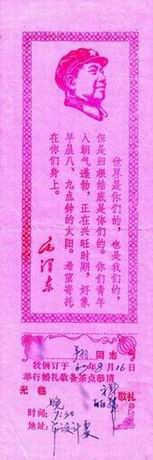 世界是你们的，也是我们的，
但是归根结底是你们的。你们青年
人朝气蓬勃，正在兴旺时期，好象
早晨八、九点钟的太阳。希望寄托
在你们身上。
毛泽东
阴历
我俩订于 年9月16日
举行婚礼敬备茶点恭请
光临
敬礼
时间：晚7:30
地址：